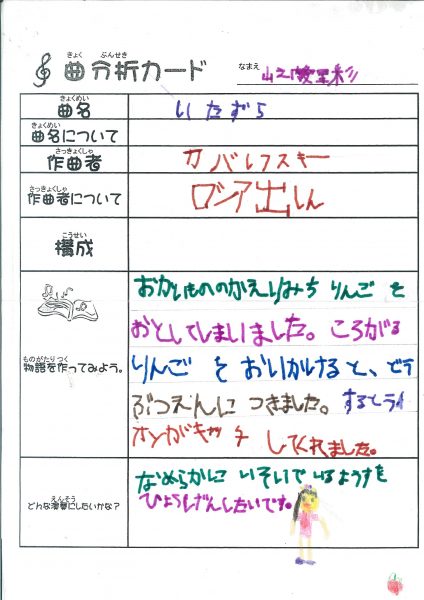 きょく ぶんせき
曲分析カード
なまえ
きょくめい
曲名
いたずら
きょくめい
曲名について
さっきょくしゃ
作曲者
カバレフスキー
さっきょくしゃ
作曲者について
ロシア出しん
こうせい
構成
ものがたり つく
物語を作ってみよう。
おかいもののかえりみち りんご を
おとしてしまいました。ころがる
りんご を おいかけると、どう
ぶつえんに つきました。するとライ
オンがキャッチ してくれました。
えんそう
どんな演奏にしたいかな？
なめらかに いそいで いるようすを
ひょうしげんしたいです。